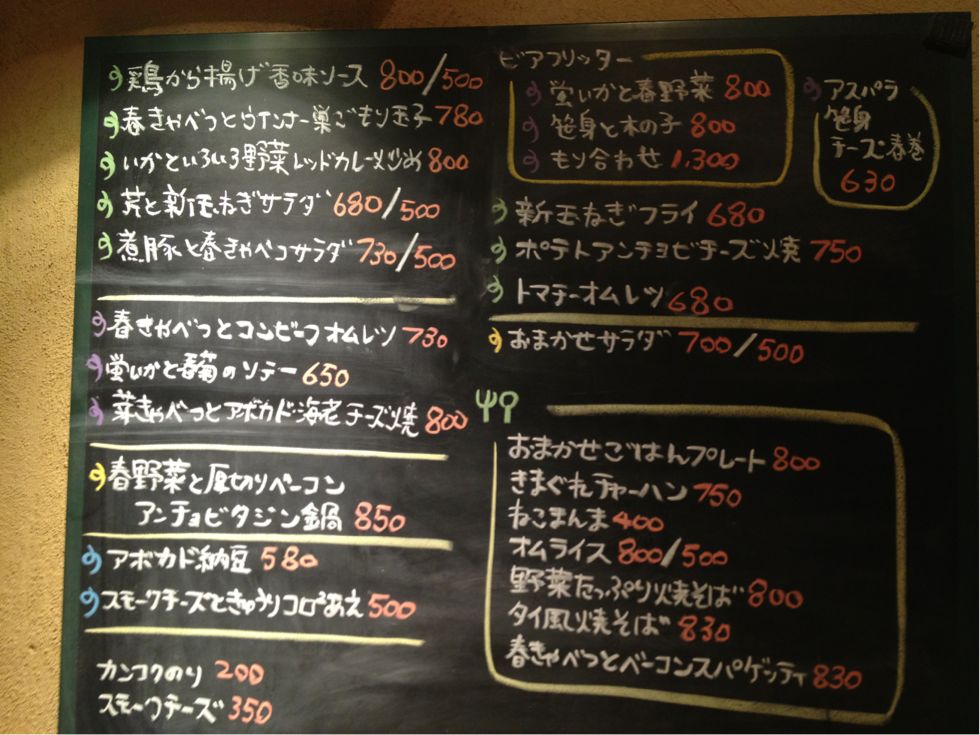 鶏から揚げ香味ソース 800/500
春きゃべつとウインナー巣ごもり玉子 780
いかといろいろ野菜レッドカレー炒め 800
芹と新玉ねぎサラダ 680/500
煮豚と春きゃべつサラダ 730/500
春きゃべつとコンビーフオムレツ 730
蛍いかと春菊のソテー 650
芽きゃべつとアボカド海老チーズ焼 800
春野菜と厚切りベーコン
アンチョビタジン鍋 850
アボカド納豆 580
スモークチーズときゅうりコロコロあえ 500
カンコクのり 200
スモークチーズ 350
ビアフリッター
蛍いかと春野菜 800
笹身と木の子 800
もり合わせ 1,300
アスパラ
笹身
チーズ春巻
630
新玉ねぎフライ 680
ポテトアンチョビチーズ焼 750
トマチーオムレツ 680
おまかせサラダ 700/500
おまかせごはんプレート 800
きまぐれチャーハン 750
ねこまんま 400
オムライス 800/500
野菜たっぷり焼そば 800
タイ風焼そば 830
春きゃべつとベーコンスパゲッティ 830